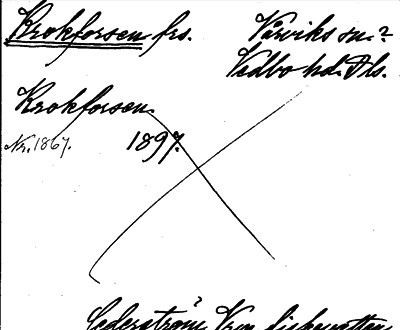 Krokforsen frs. Värviks sn.?
Vedbo hd. Dls.
Krokforsen
Nr. 1867. 1897.
Cederström? Vrm. fiskevatten